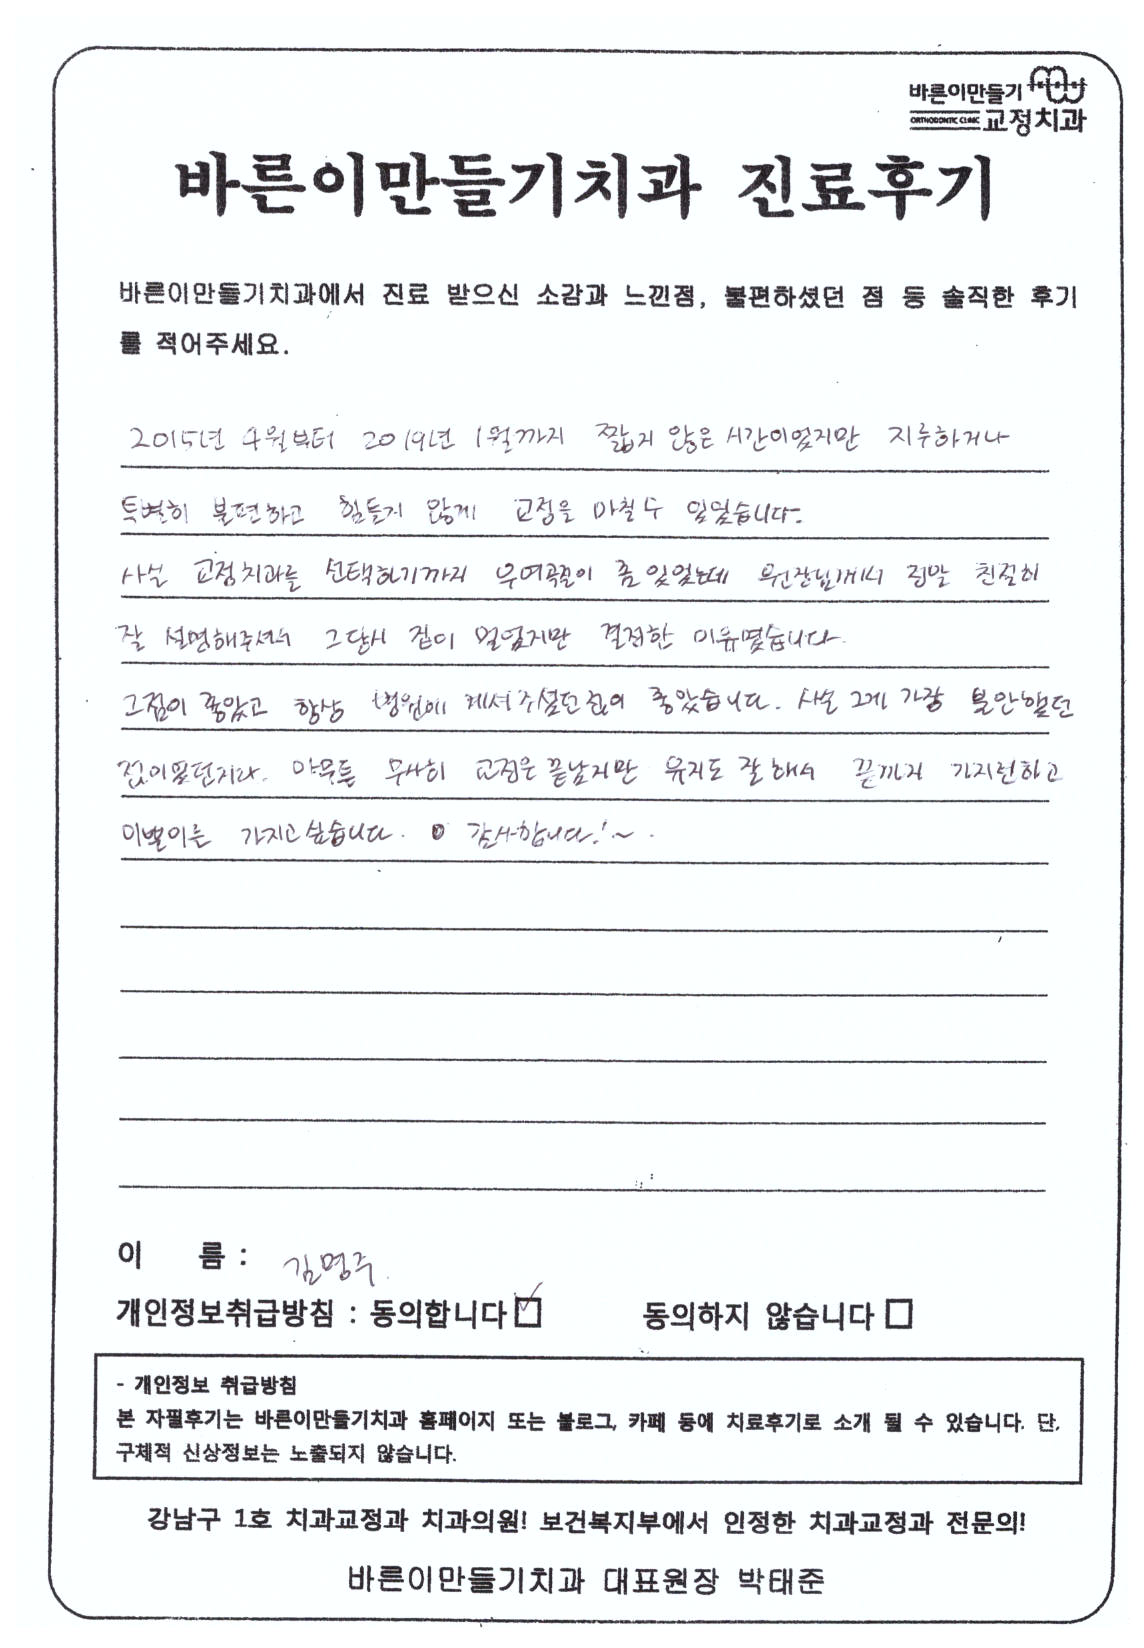 바른이만들기
ORTHODONTIC CLINIC 교정치과
바른이만들기치과 진료후기
바른이만들기치과에서 진료 받으신 소감과 느낀점, 불편하셨던 점 등 솔직한 후기
를 적어주세요.
2015년 4월부터 2019년 1월까지 짧지 않은 시간이었지만 지루하거나
특별히 불편하고 힘들지 않게 교정을 마칠수 있었습니다.
사실 교정치과를 선택하기까지 우여곡절이 좀 있었는데 원장님께서 정말 친절히
잘 설명해주셔서 그당시 집이 멀었지만 결정한 이유였습니다.
그점이 좋았고 항상 병원에 계셔주셨던 점이 좋았습니다. 사실 그게 가장 불안했던
점이였던지라. 아무튼 무사히 교정은 끝났지만 유지도 잘 해서 끝까지 가지런하고
이쁜이를 가지고싶습니다. 감사합니다!~.
이 름 : 김명주
개인정보취급방침 : 동의합니다 동의하지 않습니다
- 개인정보 취급방침
본 자필후기는 바른이만들기치과 홈페이지 또는 블로그, 카페 등에 치료후기로 소개 될 수 있습니다. 단,
구체적 신상정보는 노출되지 않습니다.
강남구 1호 치과교정과 치과의원! 보건복지부에서 인정한 치과교정과 전문의!
바른이만들기치과 대표원장 박태준